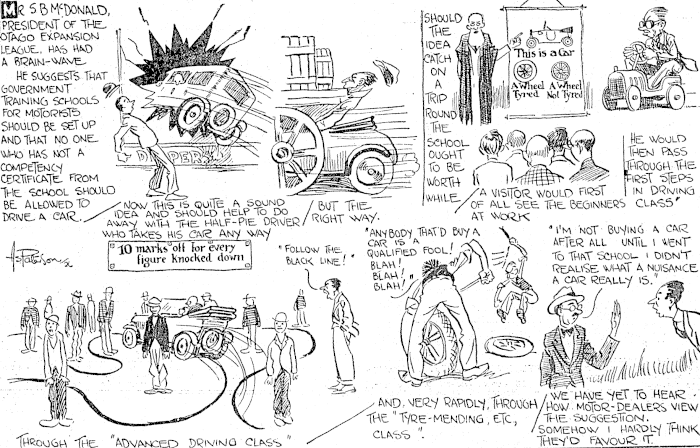 MR S B McDONALD,
PRESIDENT OF THE
OTAGO EXPANSION
LEAGUE, HAS HAD
A BRAIN-WAVE
HE SUGGESTS THAT
GOVERNMENT
TRAINING SCHOOLS
FOR MOTORISTS
SHOULD BE SET UP
AND THAT NO ONE
WHO HAS NOT A
COMPETENCY
CERTIFICATE FROM
THE SCHOOL SHOULD
BE ALLOWED TO
DRIVE A CAR.
NOW THIS IS QUITE A SOUND
IDEA AND SHOULD HELP TO DO
AWAY WITH THE HALF-PIE DRIVER
WHO TAKES HIS CAR ANY WAY
BUT THE
RIGHT WAY.
SHOULD
THE
IDEA
CATCH
ON
A
TRIP
ROUND
THE
SCHOOL
OUGHT
TO BE
WORTH
WHILE.
This is a Car
A Wheel
Tyred
A Wheel
Not Tyred
A VISITOR WOULD FIRST
OF ALL SEE THE BEGINNERS
AT WORK
HE WOULD
THEN PASS
THROUGH THE
"FIRST STEPS
IN DRIVING
CLASS"
10 marks off for every
figure knocked down
"FOLLOW THE
BLACK LINE!"
THROUGH THE "ADVANCED DRIVING CLASS"
"ANYBODY THAT'D BUY A
CAR IS A
QUALIFIED FOOL!
BLAH!
BLAH!
BLAH!"
AND, VERY RAPIDLY, THROUGH
THE "TYRE-MENDING, ETC,
CLASS".
"I'M NOT BUYING A CAR
AFTER ALL UNTIL I WENT
TO THAT SCHOOL I DIDN'T
REALISE WHAT A NUISANCE
A CAR REALLY IS."
WE HAVE YET TO HEAR
HOW MOTOR-DEALERS VIEW
THE SUGGESTION.
SOMEHOW I HARDLY THINK
THEY'D FAVOUR IT.